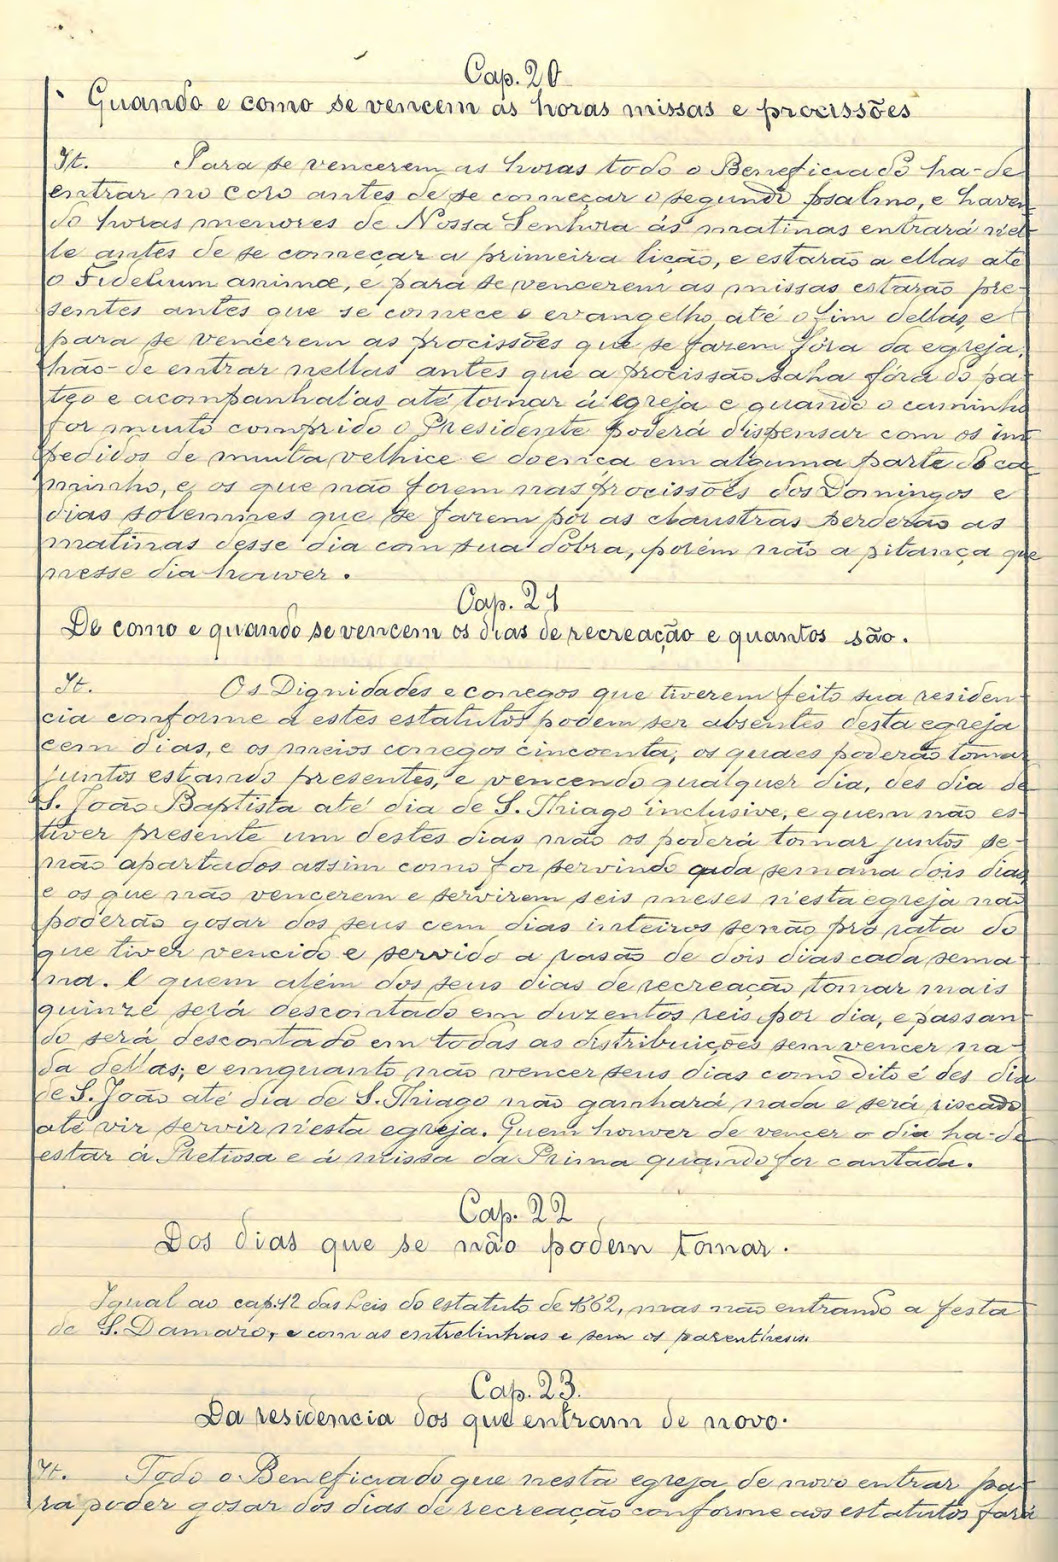 Cap. 20
Quando e como se vencem as horas missas e procissões
It. Para se vencerem as horas todo o Beneficiado ha-de
entrar no coro antes de se começar o segundo psalmo, e haven-
do horas menores de Nossa Senhora ás matinas entrará nel-
le antes de se começar a primeira lição, e estarão a ellas até
o Fidelium animæ, e para se vencerem as missas estarão pre-
sentes antes que se comece o evangelho até o fim dellas, e
para se vencerem as procissões que se fazem fóra da egreja,
hão-de entrar nellas antes que a procissão saha fóra do pa-
teo e acompanhal'as até tornar á egreja e quando o caminho
for muito comprido o Presidente poderá dispensar com os im-
pedidos de muita velhice e doença em alguma parte do ca-
minho, e os que não forem nas procissões dos Domingos e
dias solemnes que se fazem por as claustras perderão as
matinas desse dia com sua dobra, porém não a pitança que
nesse dia houver.
Cap. 21
De como e quando se vencem os dias de recreação e quantos são.
It. Os Dignidades e conegos que tiverem feito sua residen-
cia conforme a estes estatutos podem ser absentes desta egreja
cem dias, e os meios conegos cincoenta, os quaes poderão tomar
juntos estando presentes, e vencendo qualquer dia, des dia de
S. João Baptista até dia de S. Thiago inclusive, e quem não es-
tiver presente um destes dias não os poderá tomar juntos se-
não apartados assim como for servindo cada semana dois dias
e os que não vencerem e servirem seis meses n'esta egreja não
poderão gosar dos seus cem dias inteiros senão pro rata do
que tiver vencido e servido a rasão de dois dias cada sema-
na. E quem além dos seus dias de recreação tomar mais
quinze será descontado em duzentos reis por dia, e passan-
do será descontado em todas as distribuições sem vencer na-
da dellas; e emquanto não vencer seus dias como dito é des dia
de S. João até dia de S. Thiago não ganhará nada e será riscado
até vir servir n'esta egreja. Quem houver de vencer o dia ha-de
estar á Pretiosa e á missa da Prima quando for cantada.
Cap. 22
Dos dias que se não podem tomar.
Igual ao cap. 12 das Leis do estatuto de 1662, mas não entrando a festa
de S. Damaro, e com as entrelinhas e sem os parentheses.
Cap. 23.
Da residencia dos que entram de novo.
It. Todo o Beneficiado que nesta egreja de novo entrar pa-
ra poder gosar dos dias de recreação conforme aos estatutos fará